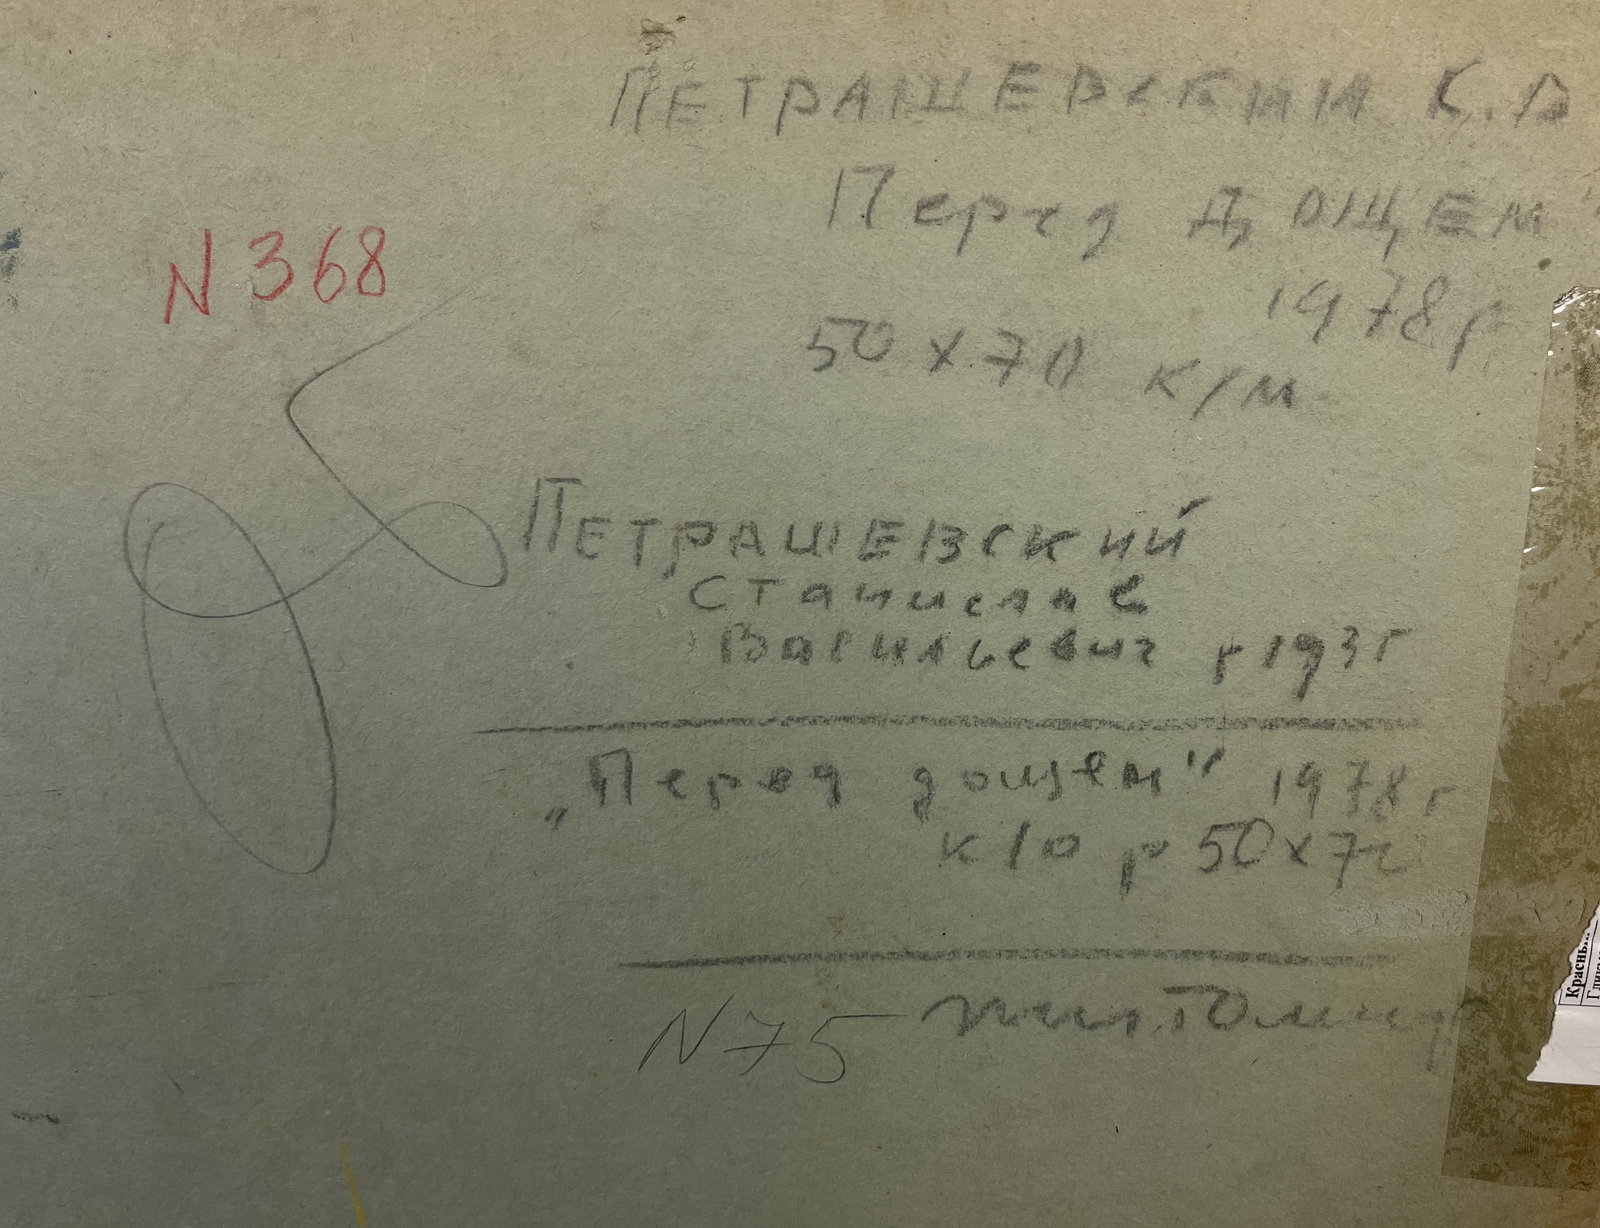 ПЕТРАШЕВСКИЙ С.В
Перед ДОЩЕМ"
1978 г
N 368
50 х 70 к/м
ПЕТРАШЕВСКИЙ
Станислав
Васильевич г 193 г
„Перед дощем" 1978 г
к/о р 50х70
N 75 житомир
Красны